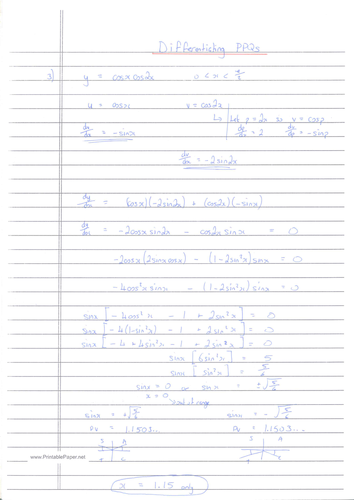 Differentiating PPQs
3) y = cosx cos2x 0 < x < π/2
u = cosx v = cos2x
↳ Let p = 2x so v = cosp
du/dx = -sinx dp/dx = 2 dv/dp = -sinp
dv/dx = -2sin2x
dy/dx = (cosx)(-2sin2x) + (cos2x)(-sinx)
dy/dx = -2cosx sin2x - cos2x sinx = 0
-2cosx(2sinxcosx) - (1-2sin²x)sinx = 0
-4cos²x sinx - (1-2sin²x) sinx = 0
sinx [-4cos²x - 1 + 2sin²x] = 0
sinx [-4(1-sin²x) - 1 + 2sin²x] = 0
sinx [-4 + 4sin²x - 1 + 2sin²x] = 0
sinx [6sin²x] = 5
sinx [sin²x] = 5/6
sinx = 0 or sinx = ±√5/6
x = 0
↳ not in range
sinx = +√5/6 sinx = -√5/6
PV = 1.1503... PV = 1.1503...
S A S A
T C T C
x = 1.15 only
www.PrintablePaper.net